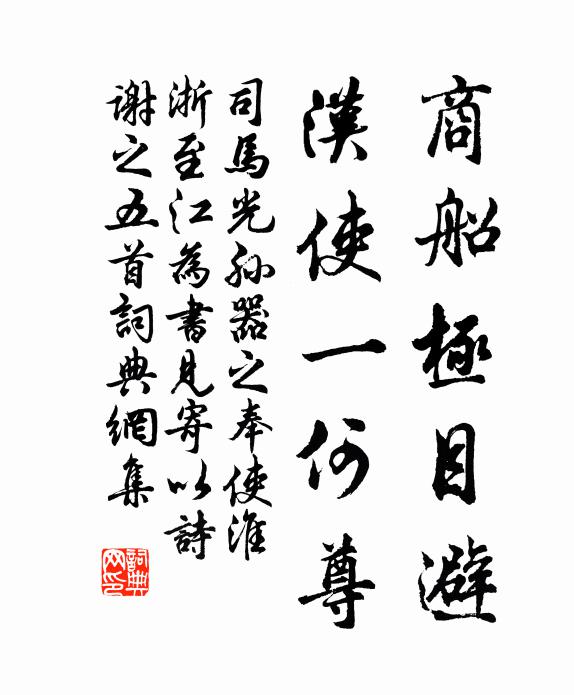 商船極目避
漢使一何尊
司馬光孫器之奉使淮
浙至江為書見寄以詩
謝之五首詞典網集
詞典网印